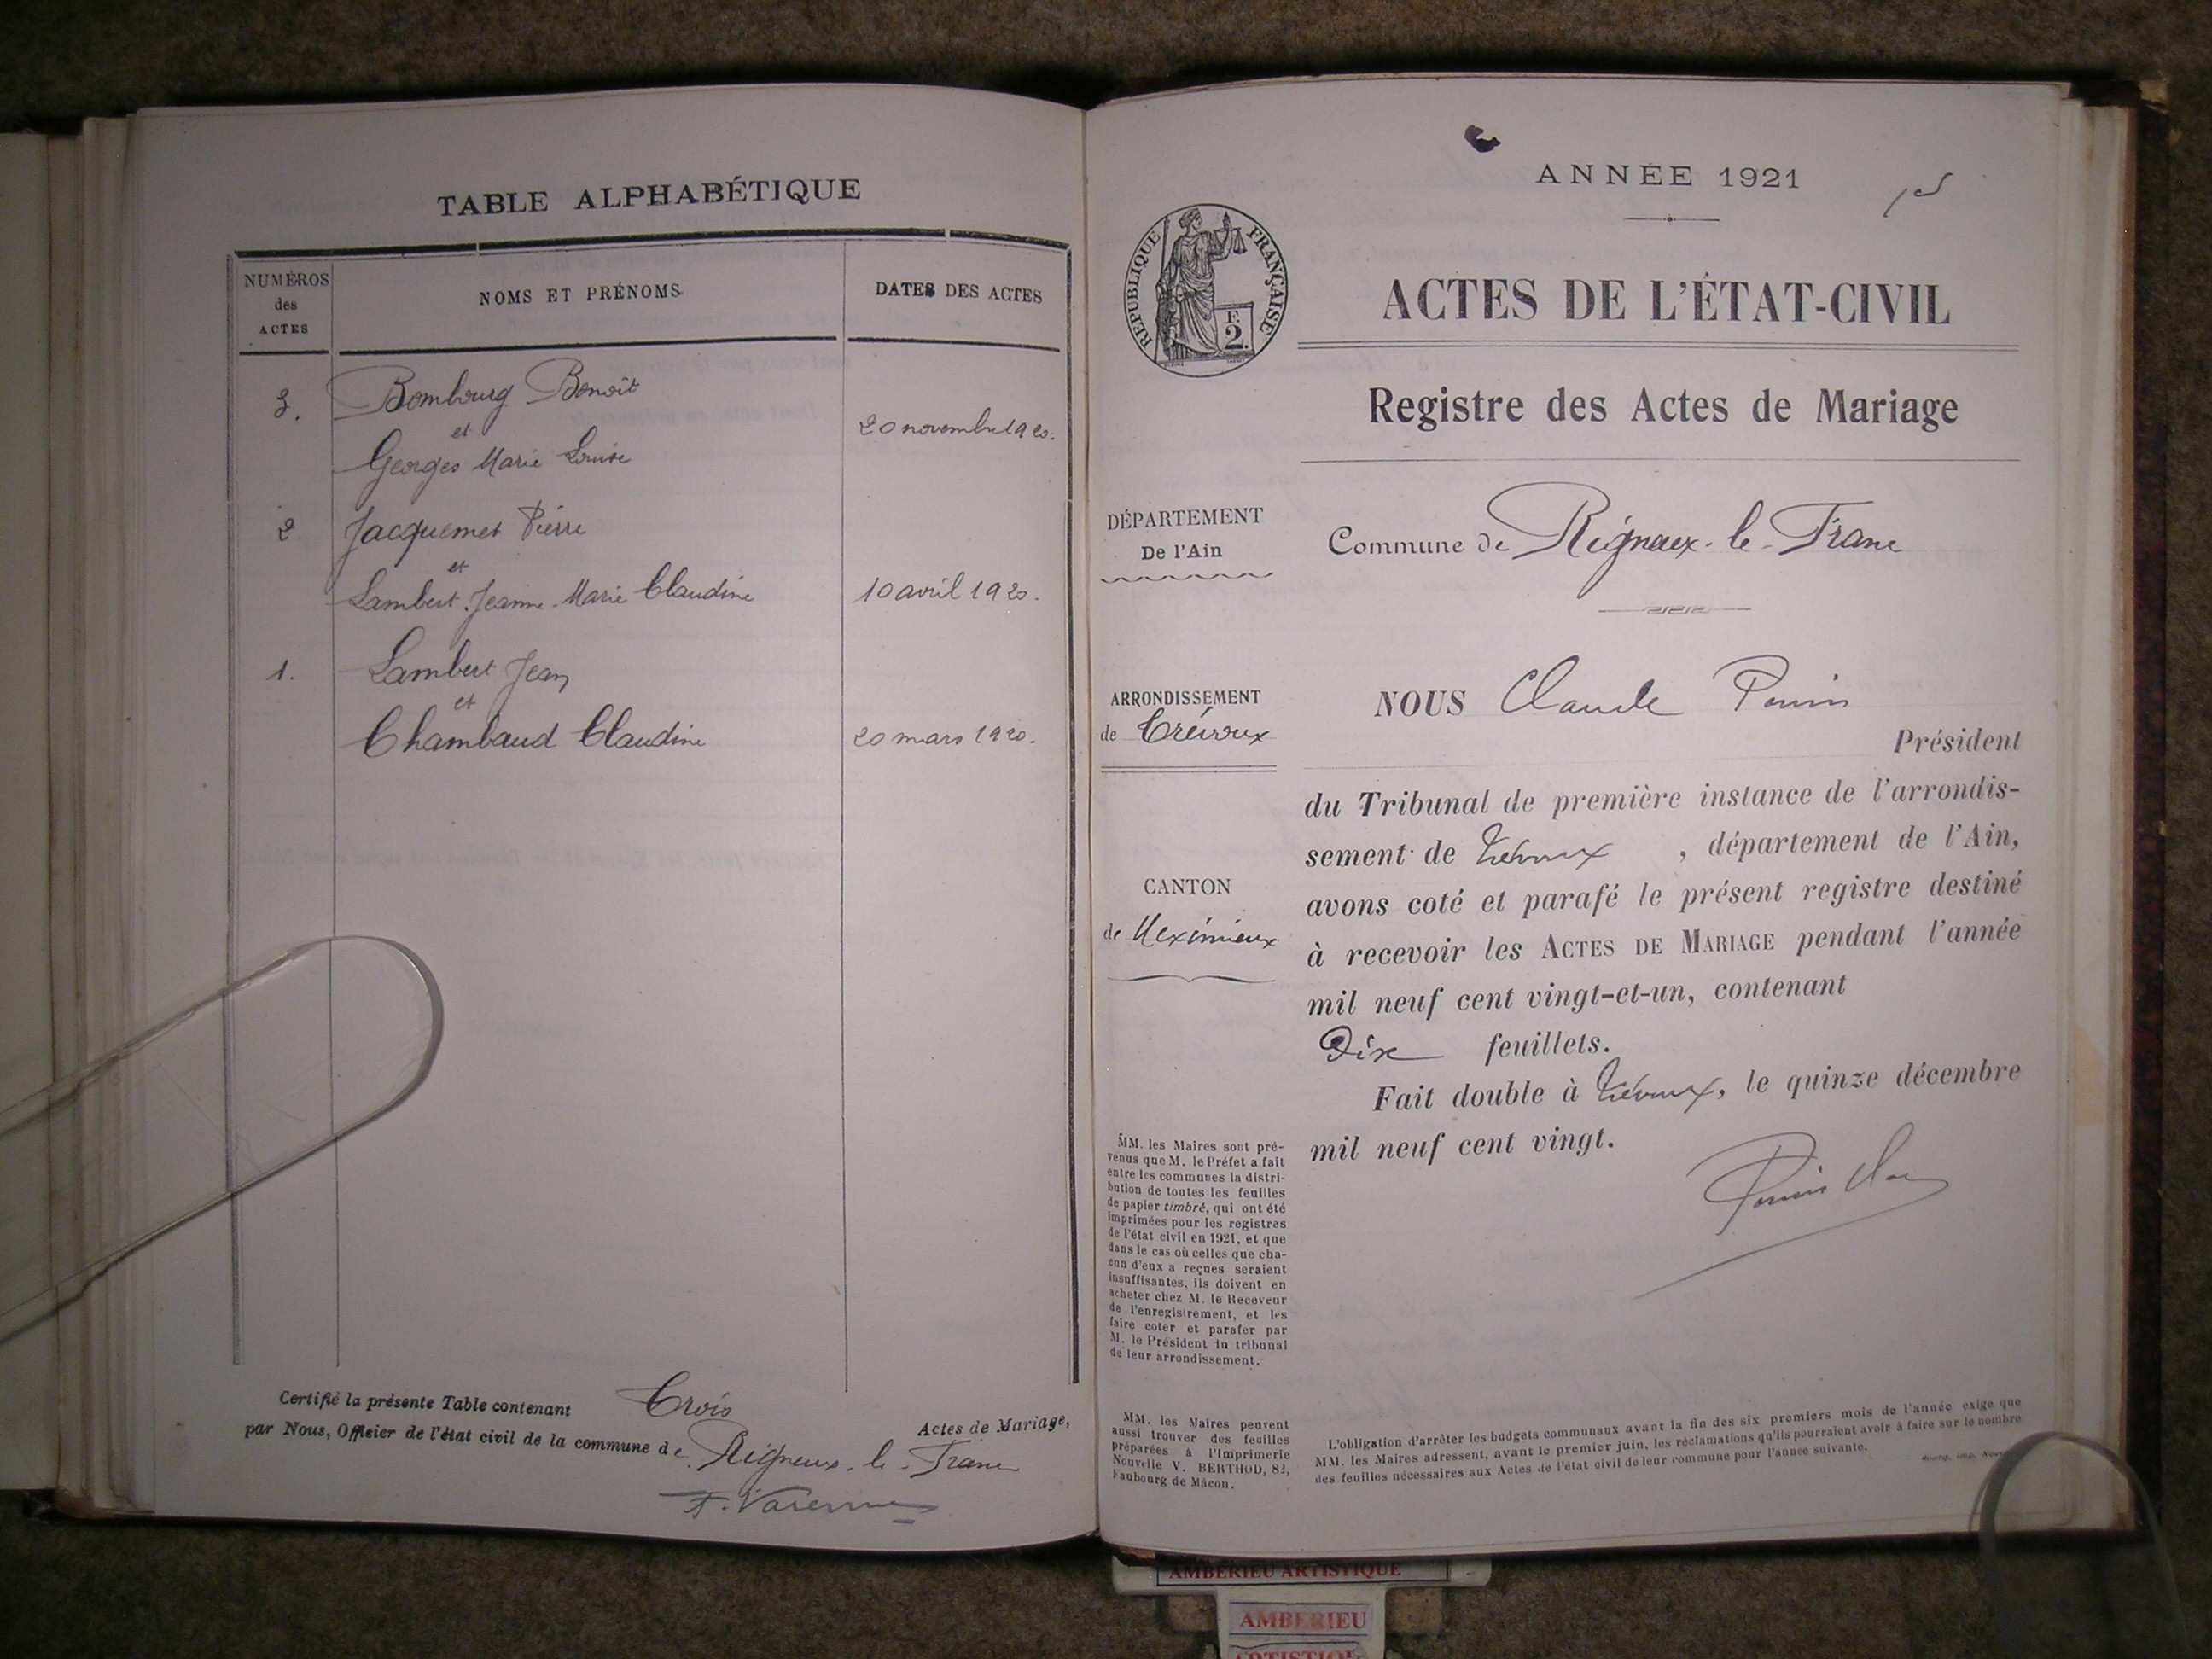 TABLE ALPHABÉTIQUE
NUMÉROS
des
ACTES
NOMS ET PRÉNOMS
DATES DES ACTES
3. Bombourg Benoît
et
20 novembre 1920.
Georges Marie Louise
2 Jacquemet Pierre
et
Lambert Jeanne Marie Claudine 10 avril 1920.
1. Lambert Jean
et
Chambaud Claudine 20 mars 1920.
Certifié la présente Table contenant Trois Actes de Mariage,
par Nous, Officier de l'état civil de la commune de Rigneux-le-Franc
F. Varenne
ANNÉE 1921
RÉPUBLIQUE FRANÇAISE
F.
2.
ACTES DE L'ÉTAT-CIVIL
Registre des Actes de Mariage
DÉPARTEMENT
De l'Ain
Commune de Rigneux-le-Franc
ARRONDISSEMENT
de Trévoux
CANTON
de Meximieux
NOUS Claude
Président
du Tribunal de première instance de l'arrondis-
sement de Trévoux, département de l'Ain,
avons coté et parafé le présent registre destiné
à recevoir les ACTES DE MARIAGE pendant l'année
mil neuf cent vingt-et-un, contenant
Dix feuillets.
Fait double à Trévoux, le quinze décembre
mil neuf cent vingt.
MM. les Maires sont pré-
venus que M. le Préfet a fait
entre les communes la distri-
bution de toutes les feuilles
de papier timbré, qui ont été
imprimées pour les registres
de l'état civil en 1921, et que
dans le cas où celles que cha-
cun d'eux a reçues seraient
insuffisantes, ils doivent en
acheter chez M. le Receveur
de l'enregistrement, et les
faire coter et parafer par
M. le Président du tribunal
de leur arrondissement.
MM. les Maires peuvent
aussi trouver des feuilles
préparées à l'Imprimerie
Nouvelle V. BERTHOD, 82,
Faubourg de Mâcon.
L'obligation d'arrêter les budgets communaux avant la fin des six premiers mois de l'année exige que
MM. les Maires adressent, avant le premier juin, les réclamations qu'ils pourraient avoir à faire sur le nombre
des feuilles nécessaires aux Actes de l'état civil de leur commune pour l'année suivante.
AMBERIEU ARTISTIQUE
AMBERIEU
ARTISTIQUE